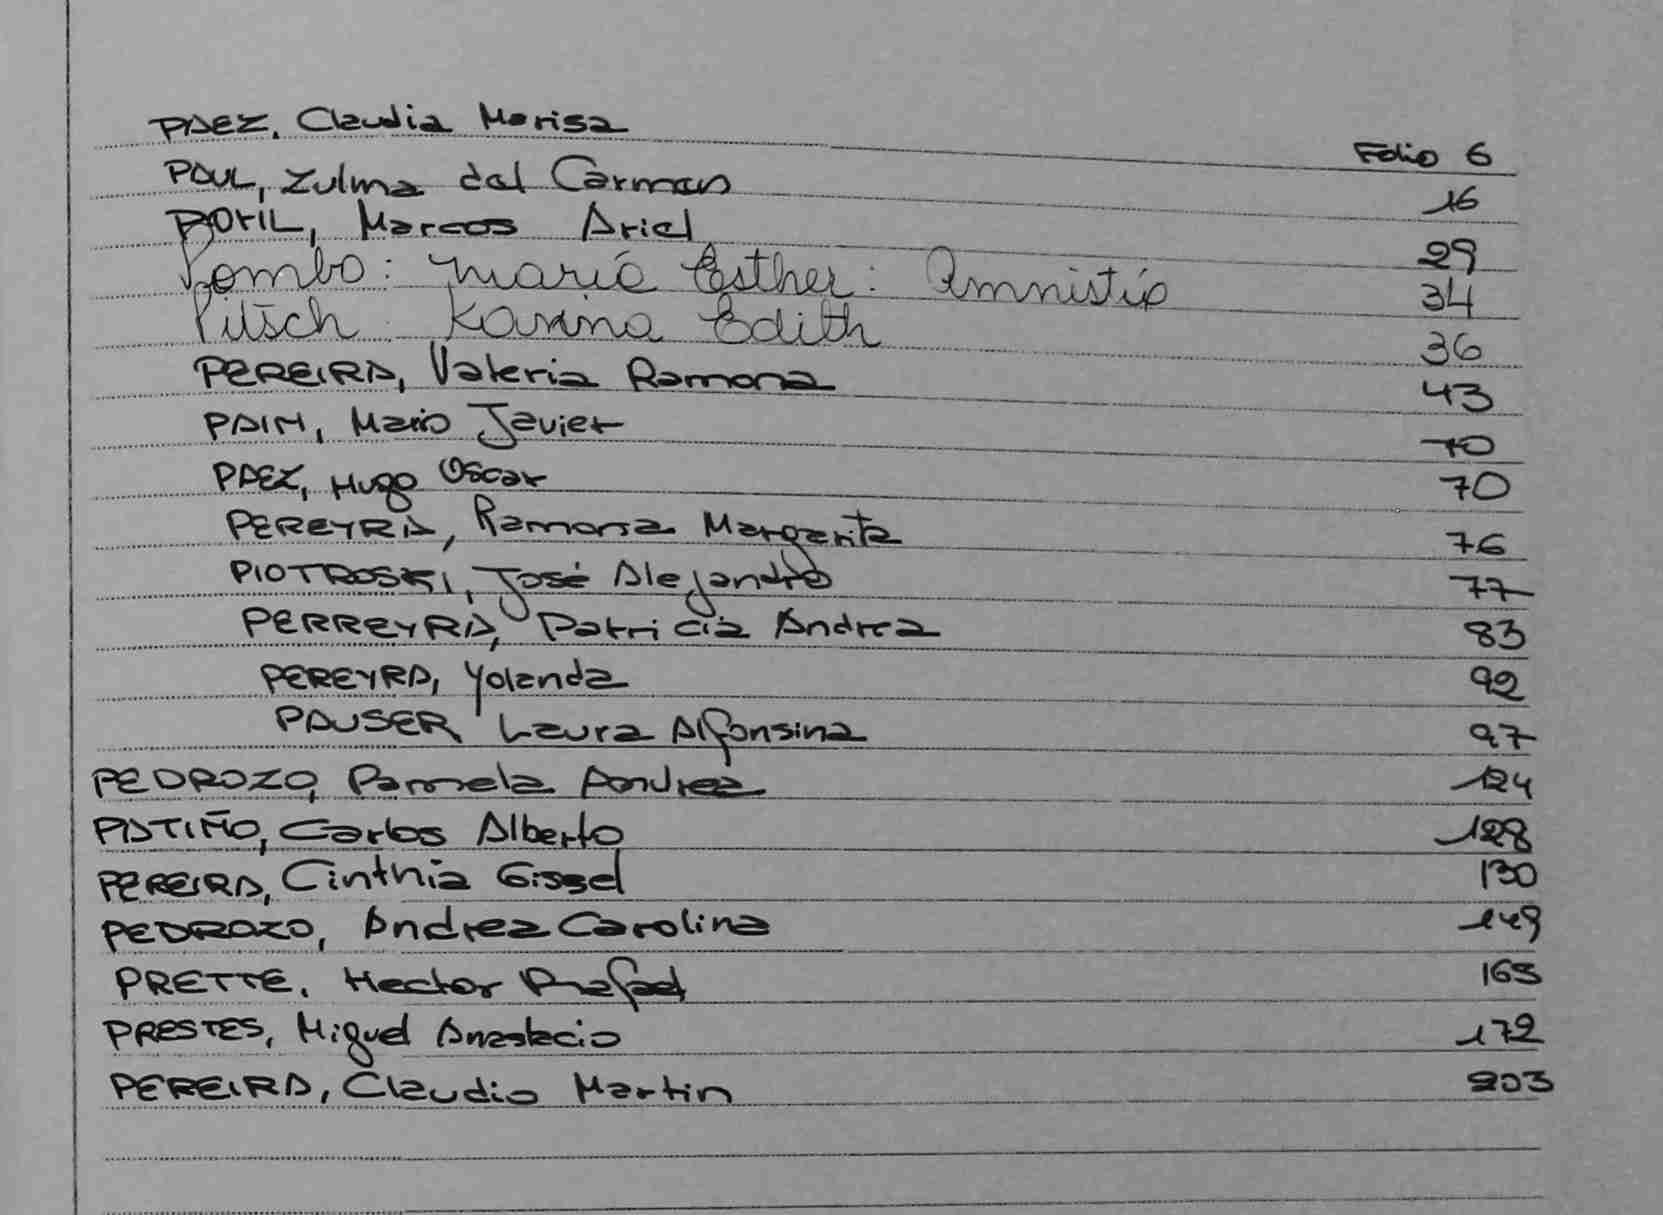 PAEZ, Claudia Marisa Folio 6
PAUL, Zulma del Carmen 16
Marcos Ariel 29
Pombo: María Esther: Amnistía 34
Pitsch Karina Edith 36
PEREIRA, Valeria Ramona 43
PAIM, Mario Javier 70
PAEZ, Hugo Oscar 70
PEREYRA, Ramona Margarita 76
PIOTROSKI, José Alejandro 77
PERREYRA, Patricia Andrea 83
PEREYRA, Yolanda 92
PAUSER Laura Alfonsina 97
PEDROZO, Pamela Andrea 124
PATIÑO, Carlos Alberto 128
PEREIRA, Cinthia Gissel 130
PEDROZO, Andrea Carolina 149
PRETTE, Hector Rafael 165
PRESTES, Miguel Anastacio 172
PEREIRA, Claudio Martin 203